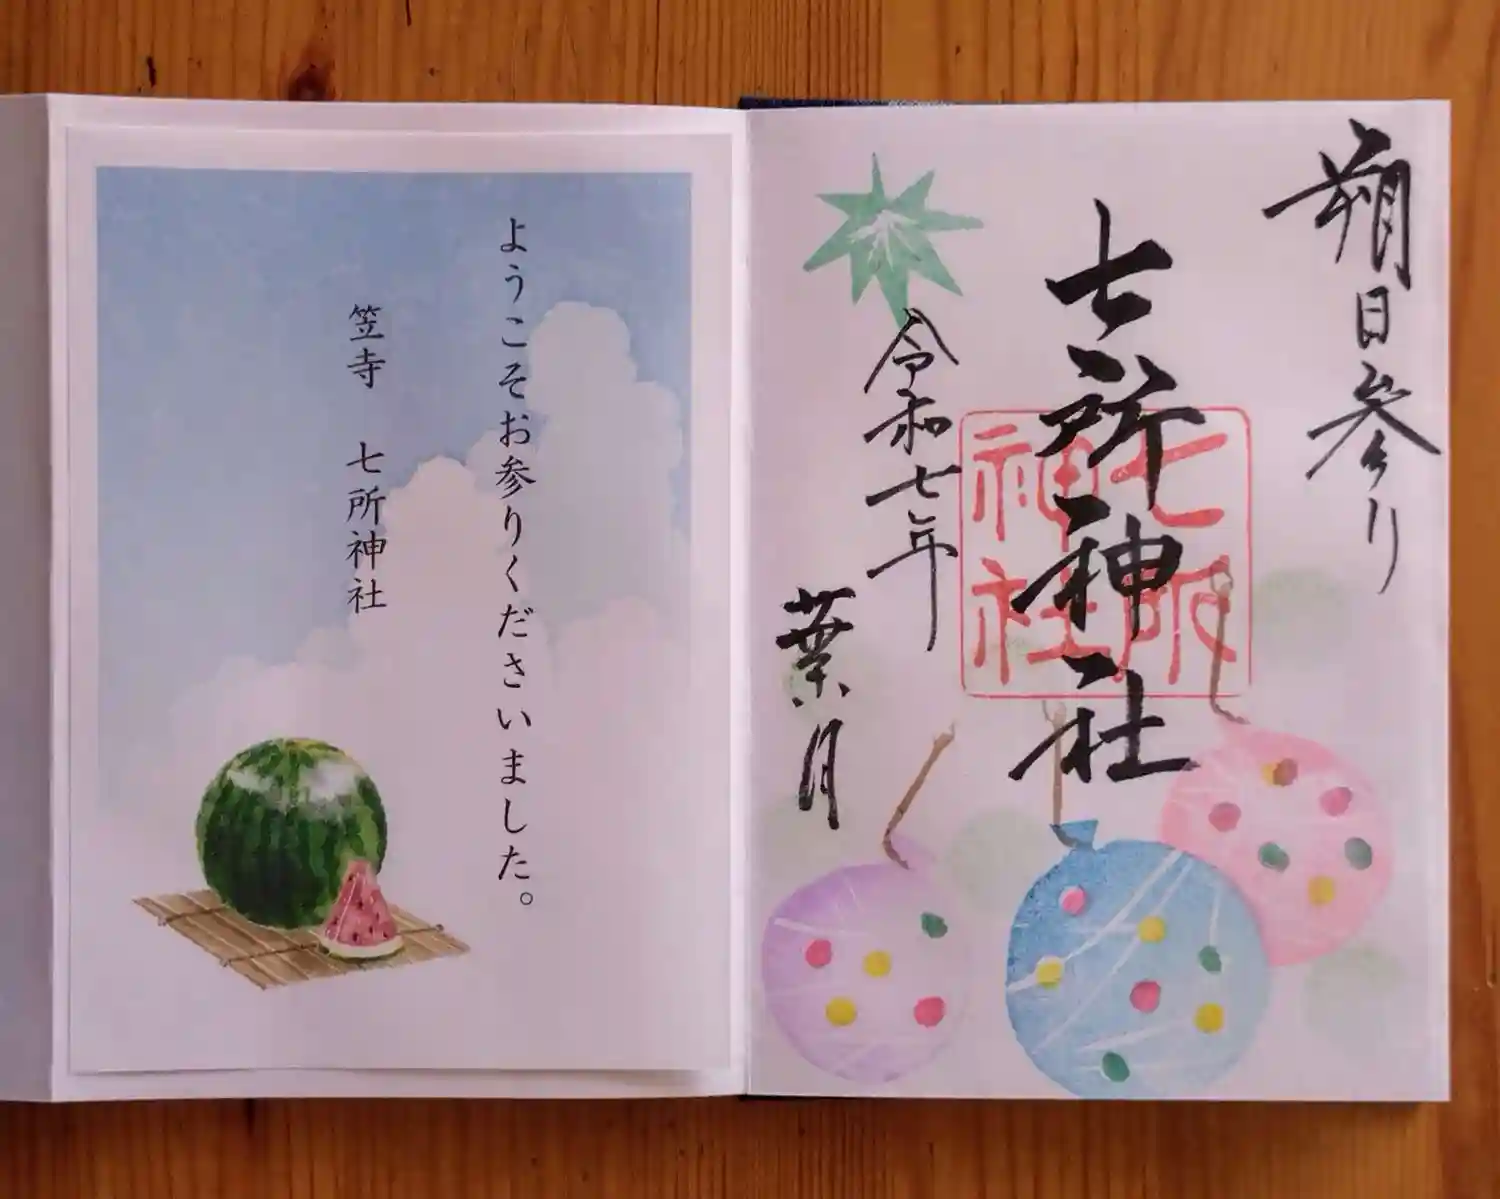 朔日参り
七所神社
七所
神社
令和七年
葉月
ようこそお参りくださいました。
笠寺 七所神社